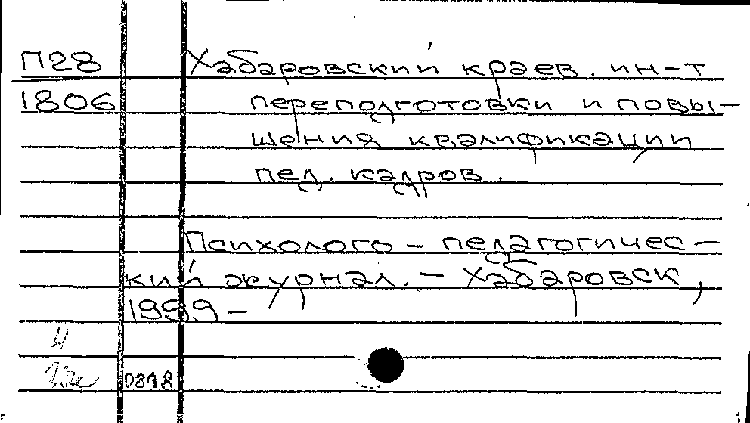 П28 Хабаровский краев. ин-т
1806 переподготовки и повы-
шения квалификации
пед. кадров.
Психолого - педагогичес-
кий журнал. - Хабаровск,
1999 -
0818